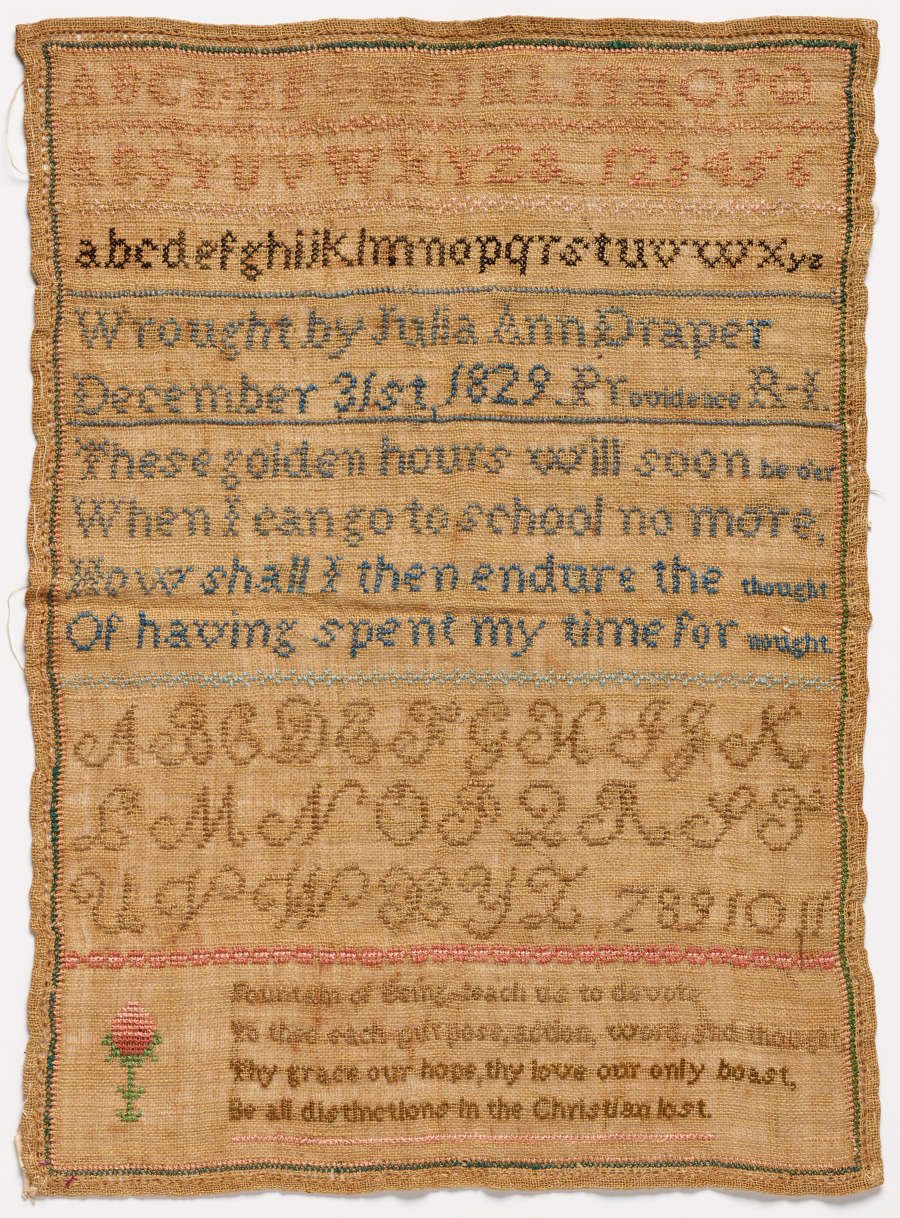 ABCDEF GHIJKLMNOPQ
RSTUVWXYZ& 123456
abcdefghijklmnopqrstuvwxyz
Wrought by Julia Ann Draper
December 31st, 1829. Providence R-I.
These golden hours will soon be o'er
When I can go to school no more,
How shall I then endure the thought
Of having spent my time for nought.
A B C D E F G H I J K
L M N O P Q R S T
U V W X Y Z 7 8 9 10 11
Fountain of Being, teach us to devote
To thee each purpose, action, word, and thought
Thy grace our hope, thy love our only boast,
Be all distinctions in the Christian lost.